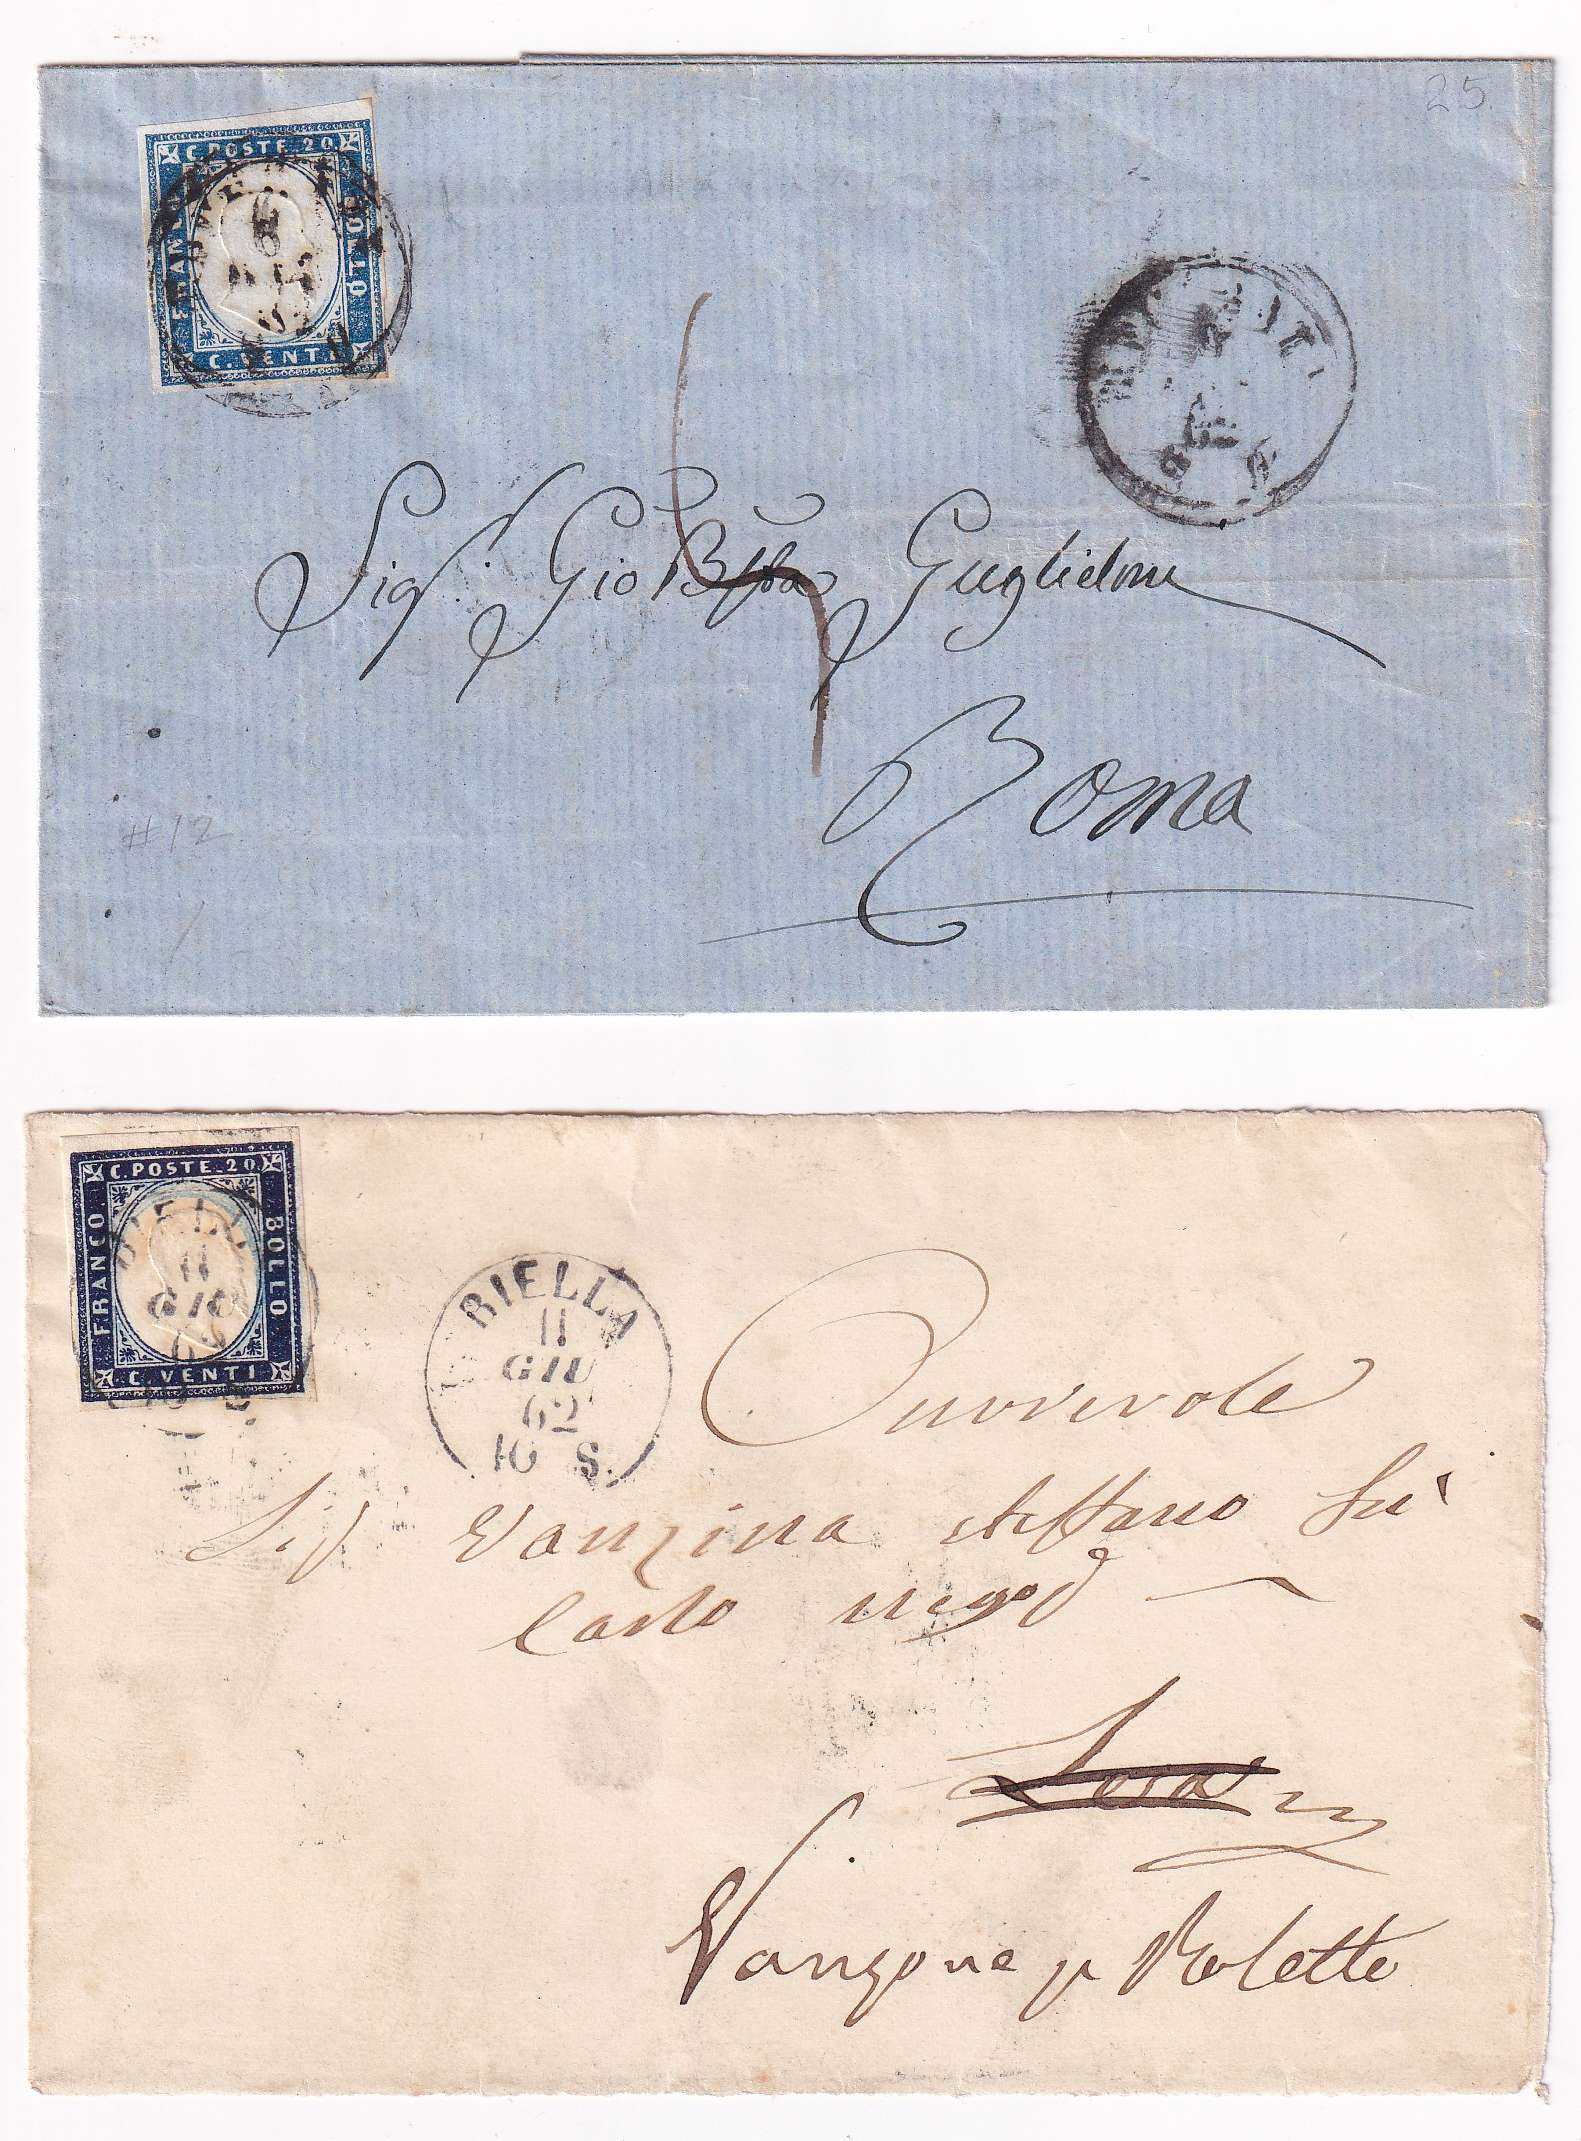 25
C. POSTE 20
FRANCO
BOLLO
C. VENTI
Sigr. Gio Batta Guglielmi
Roma
#12
C. POSTE 20
FRANCO
BOLLO
C. VENTI
BIELLA
11
GIU
62
BIELLA
11
GIU
62
10 S.
Onorevole
Sig Vanzina Steffano fu
Carlo negod
Lesa
Vanzone p Roletto